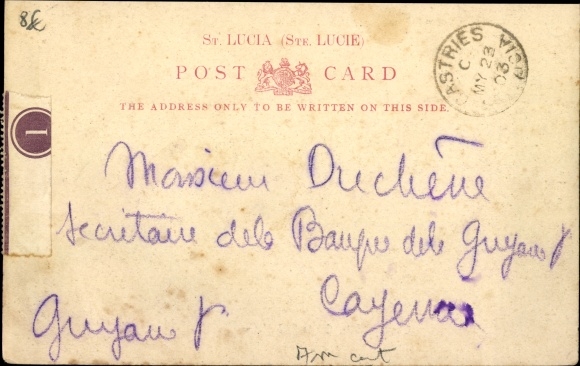 ST. LUCIA (STE. LUCIE)
POST CARD
THE ADDRESS ONLY TO BE WRITTEN ON THIS SIDE.
CASTRIES
C
MY 23
03
1
Monsieur Duchêne
Secretaire de la Banque de la Guyane f
Cayenne
Guyane f